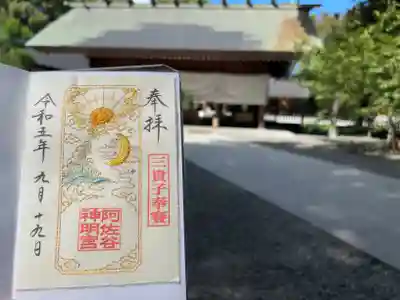 奉拝
三貴子奉賽
阿佐谷
神明宮
令和五年 九月 十九日